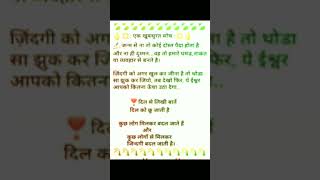 एक खूबसूरत सोच
जन्म से ना तो कोई दोस्त पैदा होता है
और ना ही दुश्मन... वह तो हमारे घमंड, ताकत
या व्यवहार से बनते है।
ज़िंदगी को अगर खुल कर जीना है तो थोडा
सा झुक कर जियो, तब देखो फिर, ये ईश्वर
आपको कितना ऊंचा उठा देगा..
दिल से लिखी बातें
दिल को छू जाती है
कुछ लोग मिलकर बदल जाते हैं
और
कुछ लोगों से मिलकर
जिन्दगी बदल जाती है।
ज़िंदगी को अगर
सा झुक कर जियो
आपको कितना
है तो थोडा
र, ये ईश्वर